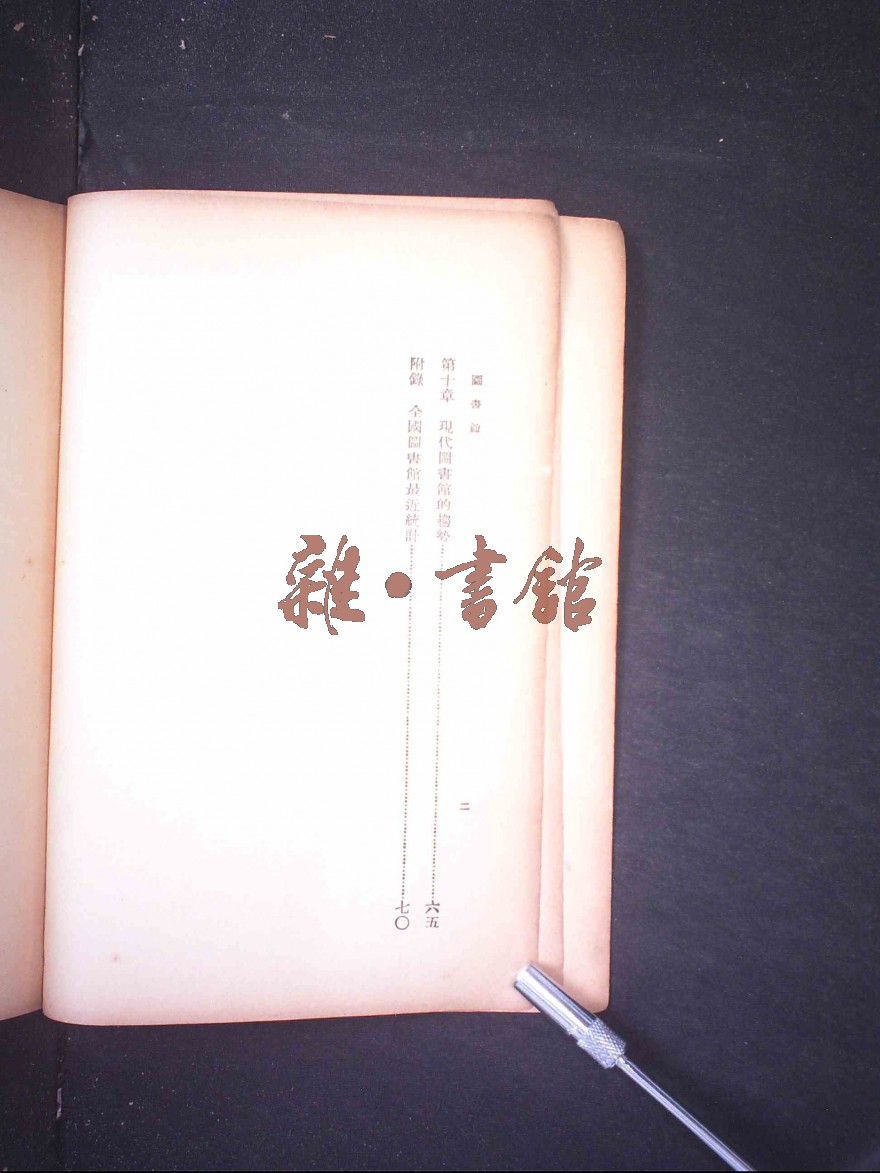 圖書館
二
第十章　現代圖書館的趨勢……六五
附錄　全國圖書館最近統計……七〇
雜•書館